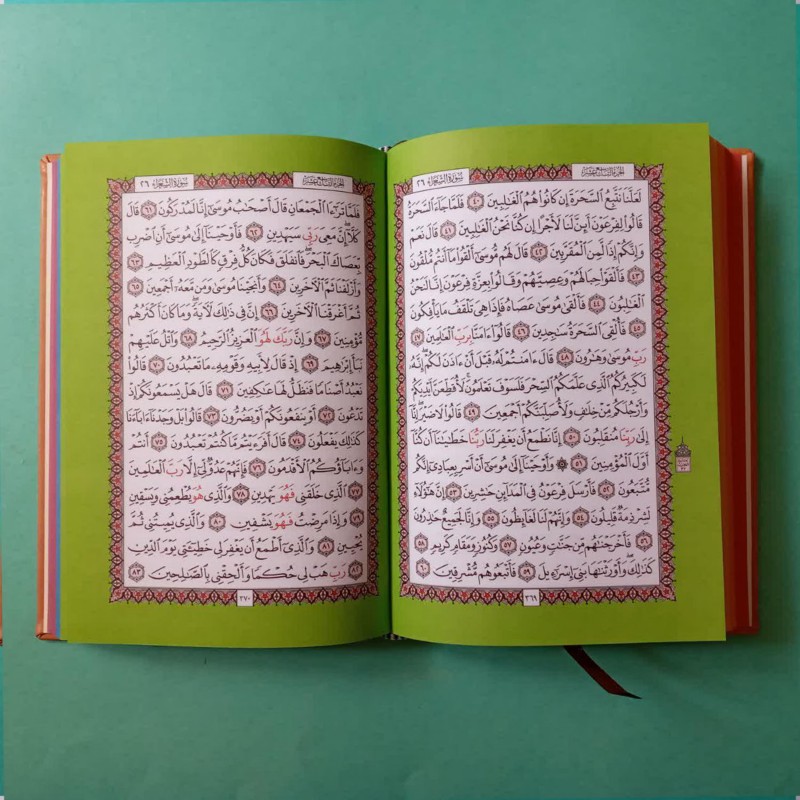 سورة الشعراء ٢٦
الجزء التاسع عشر
لَعَلَّنَا نَتَّبِعُ السَّحَرَةَ إِن كَانُوا هُمُ الْغَالِبِينَ ٤٠ فَلَمَّا جَاءَ السَّحَرَةُ
قَالُوا لِفِرْعَوْنَ أَئِنَّ لَنَا لَأَجْرًا إِن كُنَّا نَحْنُ الْغَالِبِينَ ٤١ قَالَ نَعَمْ
وَإِنَّكُمْ إِذًا لَّمِنَ الْمُقَرَّبِينَ ٤٢ قَالَ لَهُم مُّوسَىٰ أَلْقُوا مَا أَنتُم مُّلْقُونَ
٤٣ فَأَلْقَوْا حِبَالَهُمْ وَعِصِيَّهُمْ وَقَالُوا بِعِزَّةِ فِرْعَوْنَ إِنَّا لَنَحْنُ
الْغَالِبُونَ ٤٤ فَأَلْقَىٰ مُوسَىٰ عَصَاهُ فَإِذَا هِيَ تَلْقَفُ مَا يَأْفِكُونَ
٤٥ فَأُلْقِيَ السَّحَرَةُ سَاجِدِينَ ٤٦ قَالُوا ءَامَنَّا بِرَبِّ الْعَالَمِينَ ٤٧
رَبِّ مُوسَىٰ وَهَارُونَ ٤٨ قَالَ ءَامَنتُمْ لَهُ قَبْلَ أَنْ ءَاذَنَ لَكُمْ إِنَّهُ
لَكَبِيرُكُمُ الَّذِي عَلَّمَكُمُ السِّحْرَ فَلَسَوْفَ تَعْلَمُونَ لَأُقَطِّعَنَّ أَيْدِيَكُمْ
وَأَرْجُلَكُم مِّنْ خِلَافٍ وَلَأُصَلِّبَنَّكُمْ أَجْمَعِينَ ٤٩ قَالُوا لَا ضَيْرَ إِنَّا
إِلَىٰ رَبِّنَا مُنقَلِبُونَ ٥٠ إِنَّا نَطْمَعُ أَن يَغْفِرَ لَنَا رَبُّنَا خَطَايَانَا أَن كُنَّا
أَوَّلَ الْمُؤْمِنِينَ ٥١ ۞ وَأَوْحَيْنَا إِلَىٰ مُوسَىٰ أَنْ أَسْرِ بِعِبَادِي إِنَّكُم
مُّتَّبَعُونَ ٥٢ فَأَرْسَلَ فِرْعَوْنُ فِي الْمَدَائِنِ حَاشِرِينَ ٥٣ إِنَّ هَٰؤُلَاءِ
لَشِرْذِمَةٌ قَلِيلُونَ ٥٤ وَإِنَّهُمْ لَنَا لَغَائِظُونَ ٥٥ وَإِنَّا لَجَمِيعٌ حَاذِرُونَ
٥٦ فَأَخْرَجْنَاهُم مِّن جَنَّاتٍ وَعُيُونٍ ٥٧ وَكُنُوزٍ وَمَقَامٍ كَرِيمٍ ٥٨
كَذَٰلِكَ وَأَوْرَثْنَاهَا بَنِي إِسْرَائِيلَ ٥٩ فَأَتْبَعُوهُم مُّشْرِقِينَ ٦٠
٣٦٩
سورة الشعراء ٢٦
الجزء التاسع عشر
فَلَمَّا تَرَاءَى الْجَمْعَانِ قَالَ أَصْحَابُ مُوسَىٰ إِنَّا لَمُدْرَكُونَ ٦١ قَالَ
كَلَّا إِنَّ مَعِيَ رَبِّي سَيَهْدِينِ ٦٢ فَأَوْحَيْنَا إِلَىٰ مُوسَىٰ أَنِ اضْرِب
بِّعَصَاكَ الْبَحْرَ فَانفَلَقَ فَكَانَ كُلُّ فِرْقٍ كَالطَّوْدِ الْعَظِيمِ ٦٣
وَأَزْلَفْنَا ثَمَّ الْآخَرِينَ ٦٤ وَأَنجَيْنَا مُوسَىٰ وَمَن مَّعَهُ أَجْمَعِينَ ٦٥
ثُمَّ أَغْرَقْنَا الْآخَرِينَ ٦٦ إِنَّ فِي ذَٰلِكَ لَآيَةً وَمَا كَانَ أَكْثَرُهُم
مُّؤْمِنِينَ ٦٧ وَإِنَّ رَبَّكَ لَهُوَ الْعَزِيزُ الرَّحِيمُ ٦٨ وَاتْلُ عَلَيْهِمْ
نَبَأَ إِبْرَاهِيمَ ٦٩ إِذْ قَالَ لِأَبِيهِ وَقَوْمِهِ مَا تَعْبُدُونَ ٧٠ قَالُوا
نَعْبُدُ أَصْنَامًا فَنَظَلُّ لَهَا عَاكِفِينَ ٧١ قَالَ هَلْ يَسْمَعُونَكُمْ إِذْ
تَدْعُونَ ٧٢ أَوْ يَنفَعُونَكُمْ أَوْ يَضُرُّونَ ٧٣ قَالُوا بَلْ وَجَدْنَا ءَابَاءَنَا
كَذَٰلِكَ يَفْعَلُونَ ٧٤ قَالَ أَفَرَءَيْتُم مَّا كُنتُمْ تَعْبُدُونَ ٧٥ أَنتُمْ
وَءَابَاؤُكُمُ الْأَقْدَمُونَ ٧٦ فَإِنَّهُمْ عَدُوٌّ لِّي إِلَّا رَبَّ الْعَالَمِينَ
٧٧ الَّذِي خَلَقَنِي فَهُوَ يَهْدِينِ ٧٨ وَالَّذِي هُوَ يُطْعِمُنِي وَيَسْقِينِ
٧٩ وَإِذَا مَرِضْتُ فَهُوَ يَشْفِينِ ٨٠ وَالَّذِي يُمِيتُنِي ثُمَّ
يُحْيِينِ ٨١ وَالَّذِي أَطْمَعُ أَن يَغْفِرَ لِي خَطِيئَتِي يَوْمَ الدِّينِ
٨٢ رَبِّ هَبْ لِي حُكْمًا وَأَلْحِقْنِي بِالصَّالِحِينَ ٨٣
٣٧٠